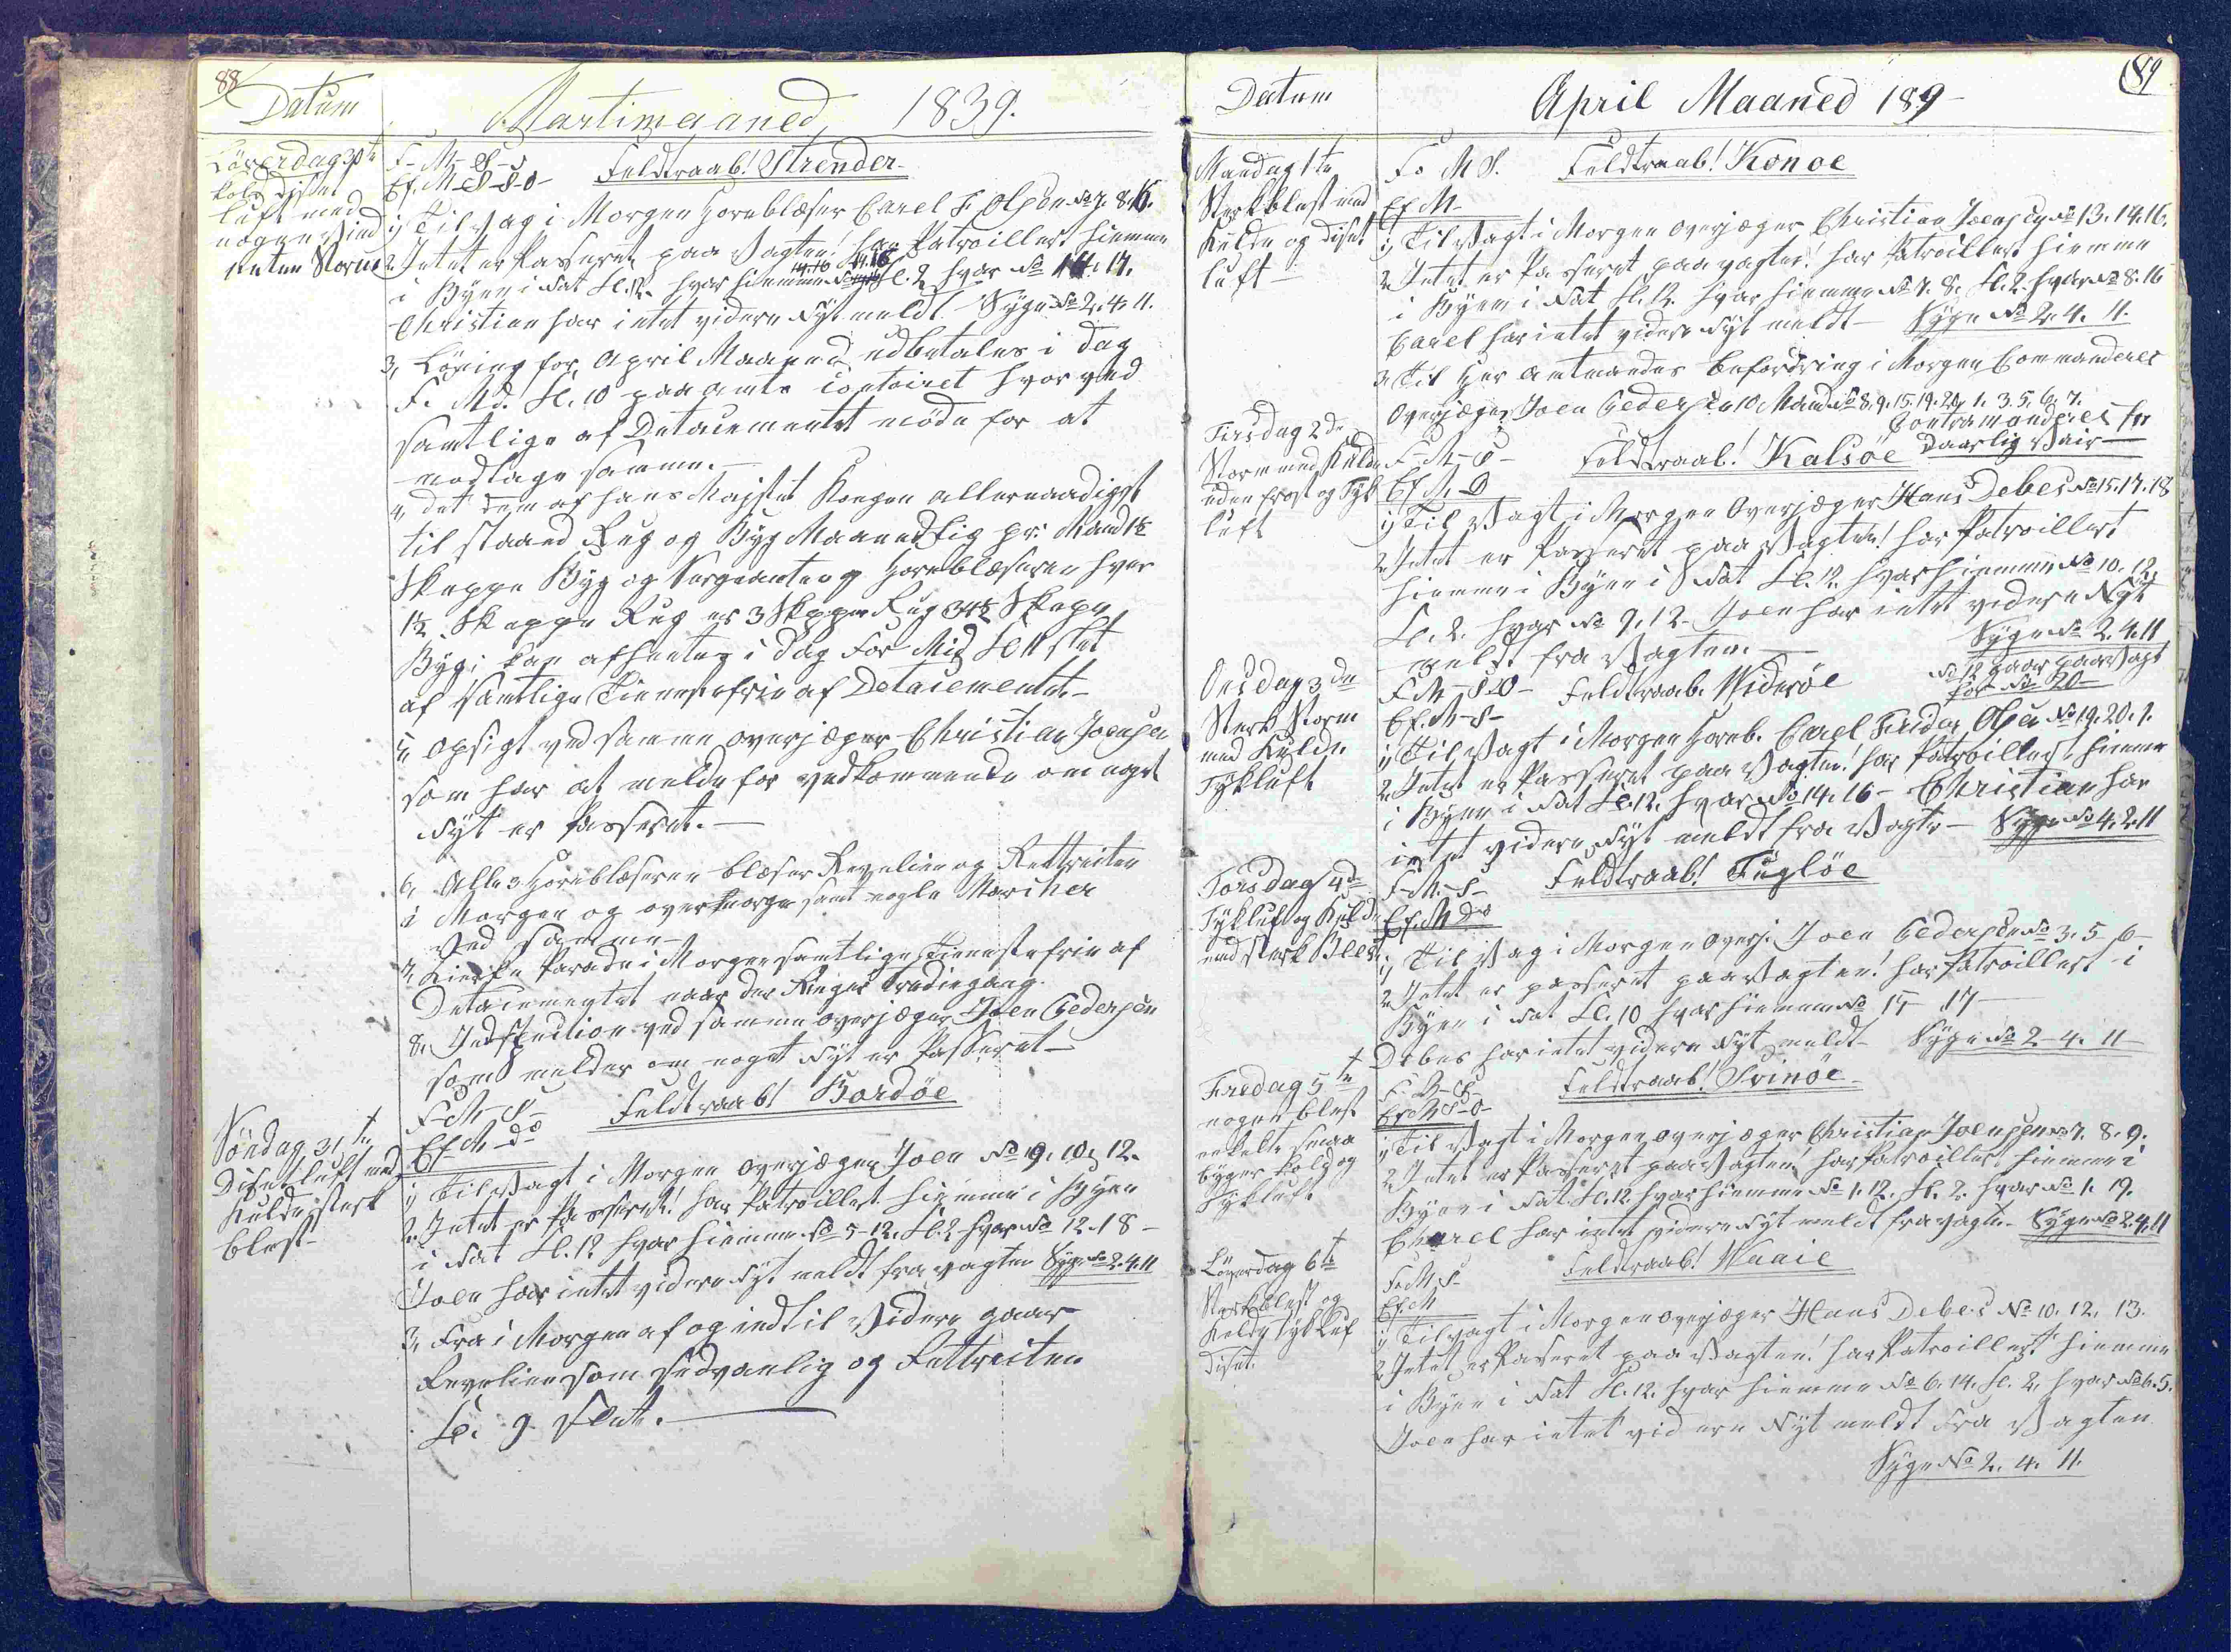 88
Datum
Martimaaned 1839.
Löverdag 30te
kold diset
luft med
nogen Vind
uden Storm
F-M-S-s
Ef. M-S-S-O- Feldtraab! Strender
1, Til Vagt i Morgen Hornblæser Carel F. Olsen No 7. 8. 16.
2, Intet er Passeret paa Vagten! har Patroilleret hiemme
i Byen i Nat Kl. 12. hvar hiemme No 14. 16 Kl. 2 hvar No 14. 17.
Christian har intet videre Nyt meldt. Syge No 2. 4. 11.
3, Löning for April Maaned udbetales i dag
F. Md. Kl. 10 paa amts Contoiret hvor ved
samtlige af Detacementet möde for at
modtage samme.—
4, det dem af hans Majstet Kongen allernaadigst
til staaed Rug og Byg Maanedlig pr: Mand 1½
Skeppe Byg og Sergeanten og Hornblæseren hver
1½ Skeppe Rug er 3 Skepper Rug 34½ Skepe
Byg; kan afhentes i dag For Mid Kl 11 slet
af samtlige Tienestefrie af Detacementet-
5, Opsigt ved samme overjæger Christian Joensen
som har at melde for vedkommende om noget
Nyt er Passeret.—
6, Alle 3 Hornblæseren blæser Revelien og Rettreiten
i Morgen og overmorgen samt nogle Marcher
ved samme-
7, Kierke Parade i Morgen samtlige Tienestefrie af
Detacementet naar der Ringes Tredie gang.
8, Indspection ved samme overjæger Joen Pedersen
som melder om noget Nyt er Passeret—
Söndag 31te
Diset luft med
Kulde sterk
blest-
F-M-S- Feldtraab! Bordöe
Ef. M- do
1, Til Vagt i Morgen Overjæger Joen No 9. 10. 12.
2, Intet er Passeret! har Patroilleret hiemme i Byen
i Nat Kl. 12 hvar hiemme No 5-12. Kl. 2 hvar No 12. 18-
Joen har intet videre Nyt meldt fra vagten Syge No 2. 4. 11
3, Fra i Morgen af og indtil Videre gaar
Revelien som sedvanlig og Rettreiten
Kl. 9 Slet.
89
Datum
April Maaned 189-
Mandag 1te
Sterk blest med
Kulde og diset
luft-
F. M S. Feldtraab! Konoe
Ef M-
1, Til Vagt i Morgen overjæger Christian Joensen No 13. 14. 16.
2, Intet er Passeret paa vagten! har Patroilleret hiemme
i Byen i Nat Kl. 12. hvar hiemme No 7. 8. Kl. 2. hvar No 8. 16
Carel har intet videre Nyt meldt- Syge No 2. 4. 11.
3, Til Her Amtmandes befordring i Morgen Commanderes
Overjæger Joen Pedersen 10 Mand No 8. 9. 15. 19. 20. 1. 3. 5. 6. 7.
Contramanderes for
daarlig Vair—
Tirsdag 2de
Storm med Kulde
uden frost og Tyk
luft
F-M-S- Feldtraab! Kalsöe
Ef M. D
1, Til Vagt i Morgen Overjæger Hans Debes No 15. 17. 18
2, Intet er Passeret paa Vagten! har Patroilleret
hiemme i Byen i Nat Kl. 12. hvar hiemme No 10. 12.
Kl. 2. hvar No 9. 12- Joen har intet videre Nyt
meldt fra Vagten.—
Syge No 2. 4. 11
No 12 gaar paa Vagt
for No 20-
Onsdag 3de
Sterk Storm
med Kulde
Tykluft
F M-S-O- Feldtraab. Viderøe
Ef. M-S-
1, Til Vagt i Morgen Hornb. Carel Frider Olsen No 19. 20. 1.
2, Intet er Passeret paa Vagten! har Patroilleret hiemme
i Byen i Nat Kl. 12. hvar No 14. 16- Christian har
intet videre Nyt meldt fra Vagten- Syge No 4. 2. 11
Torsdag 4de
Tykluft og Kulde
med sterk Blest
F-M.-S- Feldtraab! Fuglöe
Ef. M do
1, Til Vagt i Morgen Overj. Joen Pedersen No 3. 5. 6-
2, Intet er passeret paa Vagten! har Patroilleret i
Byen i Nat Kl. 10 hvar hiemme No 15- 17-
Debes har intet videre Nyt meldt- Syge No 2-4. 11-
Fredag 5te
nogen blest
enkelte smaa
byger kold og
Tykluft
Feldtraab! Svinöe-
Ef M S-O-
1, Til Vagt i Morgen overjæger Christian Joensen No 7. 8. 9.
2, Intet er Passeret paa Vagten! har Patroilleret hiemme i
Byen i Nat Kl. 12. hvar hiemme No 1. 12. Kl. 2. hvar No 1. 19.
Carel har intet videre Nyt meldt fra vagten- Syge No 2. 4. 11
Löverdag 6te
Sterk blest og
Kulde Tykluft
diset.
F. M. S- Feldtraab! Naaie
Ef. M
1, Til vagt i Morgen overjæger Hans Debes No 10. 12. 13.
2, Intet er Passeret paa Vagten! har Patroilleret hiemme
i Byen i Nat Kl. 12. hvar hiemme No 6. 14. Kl. 2. hvar No 6. 5.
Joen har intet videre Nyt meldt Fra Vagten
Syge No 2. 4. 11.